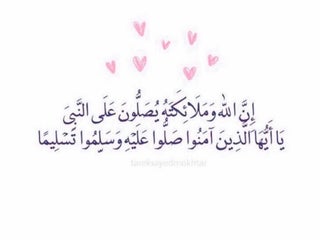 إِنَّ اللَّهَ وَمَلَائِكَتَهُ يُصَلُّونَ عَلَى النَّبِيِّ
يَا أَيُّهَا الَّذِينَ آمَنُوا صَلُّوا عَلَيْهِ وَسَلِّمُوا تَسْلِيمًا
tareksayedmokhtar